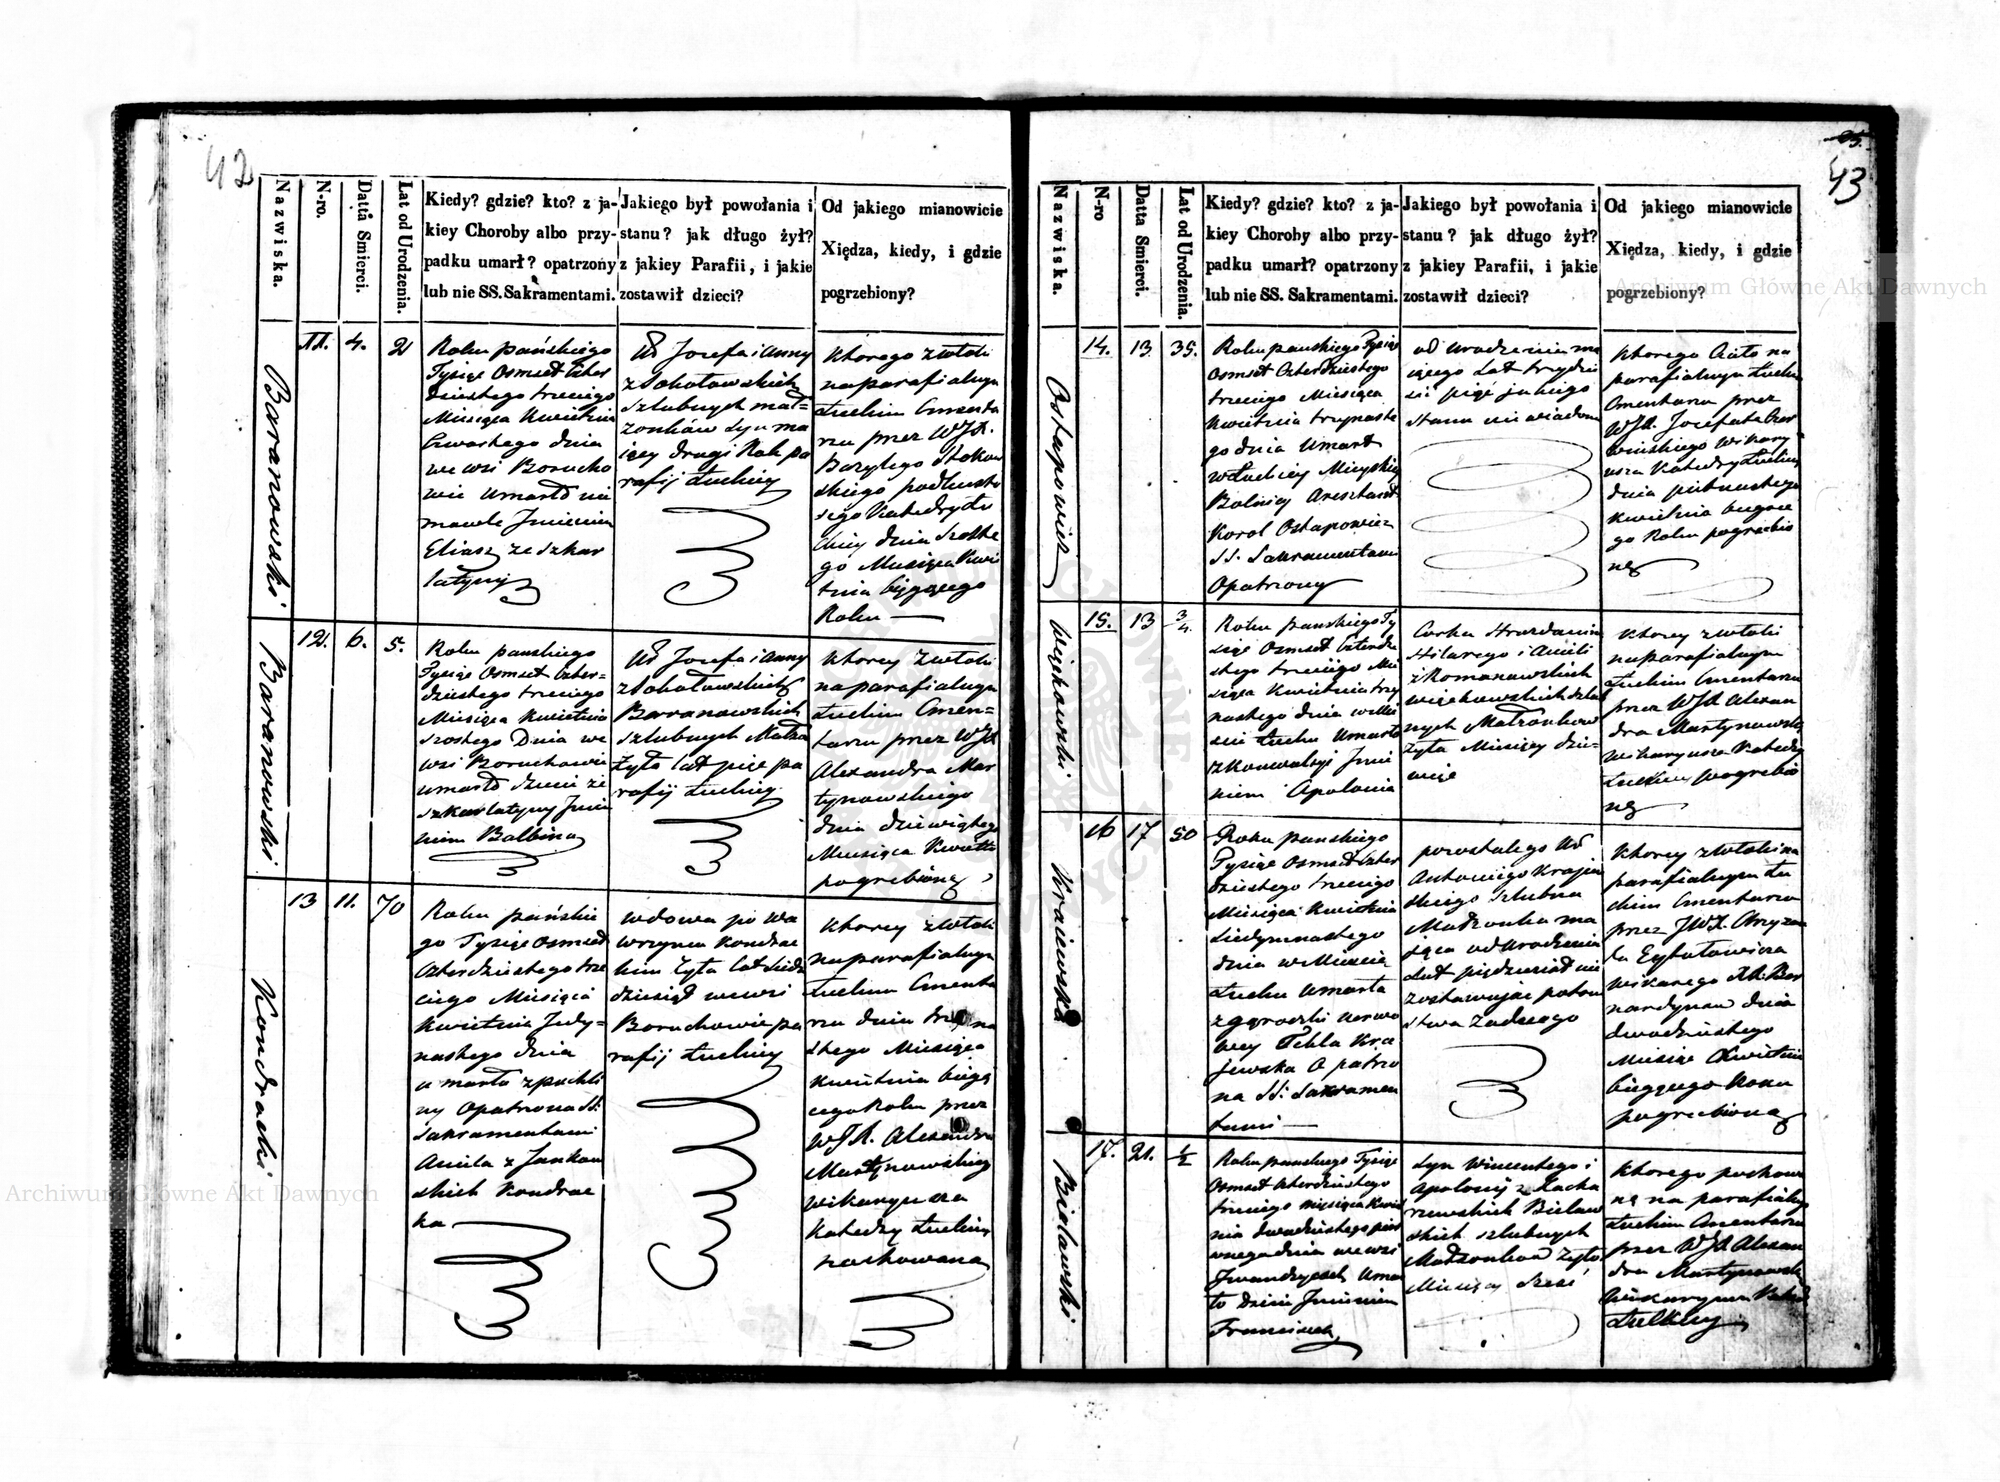 42
Nazwiska.
N-ro.
Datta Smierci.
Lat od Urodzenia.
Kiedy? gdzie? kto? z ja-
kiey Choroby albo przy-
padku umarł? opatrzony
lub nie SS. Sakramentami.
Jakiego był powołania i
stanu? jak długo żył?
z jakiey Parafii, i jakie
zostawił dzieci?
Od jakiego mianowicie
Xiędza, kiedy, i gdzie
pogrzebiony?
Baranowski
11.
4.
2
Roku pańskiego
Tysiąc Osmset Czter
dziestego trzeciego
Miesiąca Kwietnia
Czwartego dnia
we wsi Borucho
wie umarło nie
mowle Jmieniem
Eliasz ze szkar
latyny
Ur Jozefa i Anny
z Sobotowskich
szlubnych mał=
zonków syn ma
iący drugi Rok pa
rafij Łuckiey
Ktorego zwłoki
na parafialnym
Łuckim Cmenta
rzu przez WJX.
Bazylego
skiego
Katedry Łu
ckiey dnia szoste
go Miesiąca Kwie
tnia bieżącego
Roku
Baranowski
12.
6.
5.
Roku pańskiego
Tysiąc Osmset Czter=
dziestego trzeciego
Miesiąca Kwietnia
szostego Dnia we
wsi Boruchowie
umarło dziecie ze
szkarlatyny Jmie
niem Balbina
Ur Jozefa i Anny
z Sobotowskich
Baranowskich
szlubnych Małżo
żyła lat pięć pa
rafij Łuckiey
Ktorey zwłoki
na parafialnym
Łuckim Cmen=
tarzu przez WJX
Alexandra Mar
tynowskiego
dnia dziewiątego
Miesiąca Kwietn
pogrzebione
Kondracki
13
11.
70
Roku pańskie
go Tysiąc Osmset
Czterdziestego trze
ciego Miesiąca
Kwietnia Jedy=
nastego dnia
umarła z puchli
ny Opatrzona SS.
Sakramentami
Aniela z Jankow
skich Kondrac
ka
wdowa po Wa
wrzyncu Kondrac
kim żyła lat siedm
dziesiąt we wsi
Boruchowie pa
rafij Łuckiey
Ktorey zwłoki
na parafialnym
Łuckim Cmenta
rzu dnia trzyna
stego Miesiąca
Kwietnia bieżą
cego Roku przez
WJX. Alexandra
Martynowskiego
wikaryusza
Katedry Łuckiey
pochowana
43
Nazwiska.
N-ro
Datta Smierci.
Lat od Urodzenia.
Kiedy? gdzie? kto? z ja-
kiey Choroby albo przy-
padku umarł? opatrzony
lub nie SS. Sakramentami.
Jakiego był powołania i
stanu? jak długo żył?
z jakiey Parafii, i jakie
zostawił dzieci?
Od jakiego mianowicie
Xiędza, kiedy, i gdzie
pogrzebiony?
Ostapowicz
14.
13
35.
Roku pańskiego Tysiąc
Osmset Czterdziestego
trzeciego Miesiąca
Kwietnia trzynaste
go dnia Umarł
w Łuckiey Mieyskiey
Bolnicy Aresztant
Karol Ostapowicz
SS. Sakramentami
Opatrzony
od urodzenia ma
iącego Lat trzydzie
ści pięć jakiego
stanu nie wiadomo
Ktorego Ciało na
parafialnym Łuckim
Cmentarzu przez
WJX. Jozefata
wikary=
usza Katedry Łuckiey
dnia piętnastego
Kwietnia bieżące
go Roku pogrzebio
ne
Więckowski
15.
13
3/4.
Roku pańskiego Ty
siąc Osmset Czterdzie
stego trzeciego Mie
siąca Kwietnia trzy
nastego dnia w Mie
ście Łucku Umarła
z Konwulsyi Jmie
niem Apolonia
Corka
Hilarego i Anieli
z Romanowskich
Więckowskich szlub
nych Małzonkow
żyła Miesięcy dzie=
więć
Ktorey zwłoki
na parafialnym
Łuckim Cmentarzu
przez WJX Alexan
dra Martynowsk
wikaryusza Katedry
Łuckiey pogrzebio
ne
Kraiewska
16
17
50
Roku pańskiego
Tysiąc Osmset Czter
dziestego trzeciego
Miesiąca Kwietnia
Siedymnastego
dnia w Mieście
Łucku Umarła
z gorączki nerwo
wey Tekla Kra
jewska Opatrzo
na SS. Sakramen
tami
pozostałego Ur
Antoniego Krajew
skiego szlubna
Małzonka ma
iąca od Urodzenia
Lat pięćdziesiąt nie
zostawując potom
stwa żadnego
Ktorey zwłoki na
parafialnym Łu
ckim Cmentarzu
przez JWX. Chryzan
ta
wikarego XX. Ber
nardynow dnia
dwudziestego
Miesiąc Kwietnia
bieżącego Roku
pogrzebione
Bielawski
17.
21.
1/2
Roku pańskiego Tysiąc
Osmset Czterdziestego
trzeciego miesiąca Kwie
nia dwudziestego pier
wszego dnia we wsi
Umar
ło Dziecie Jmieniem
Franciszek
Syn Wincentego i
Apolonij z Zacha
rzewskich Bielaw
skich szlubnych
Małzonkow żyło
Miesięcy sześć
Ktorego pochowa
ne na parafialnym
Łuckim Cmentarzu
przez WJX Alexan
dra Martynowsk
Wikaryusza Kated
Łuckiey
Archiwum Główne Akt Dawnych
Archiwum Główne Akt Dawnych